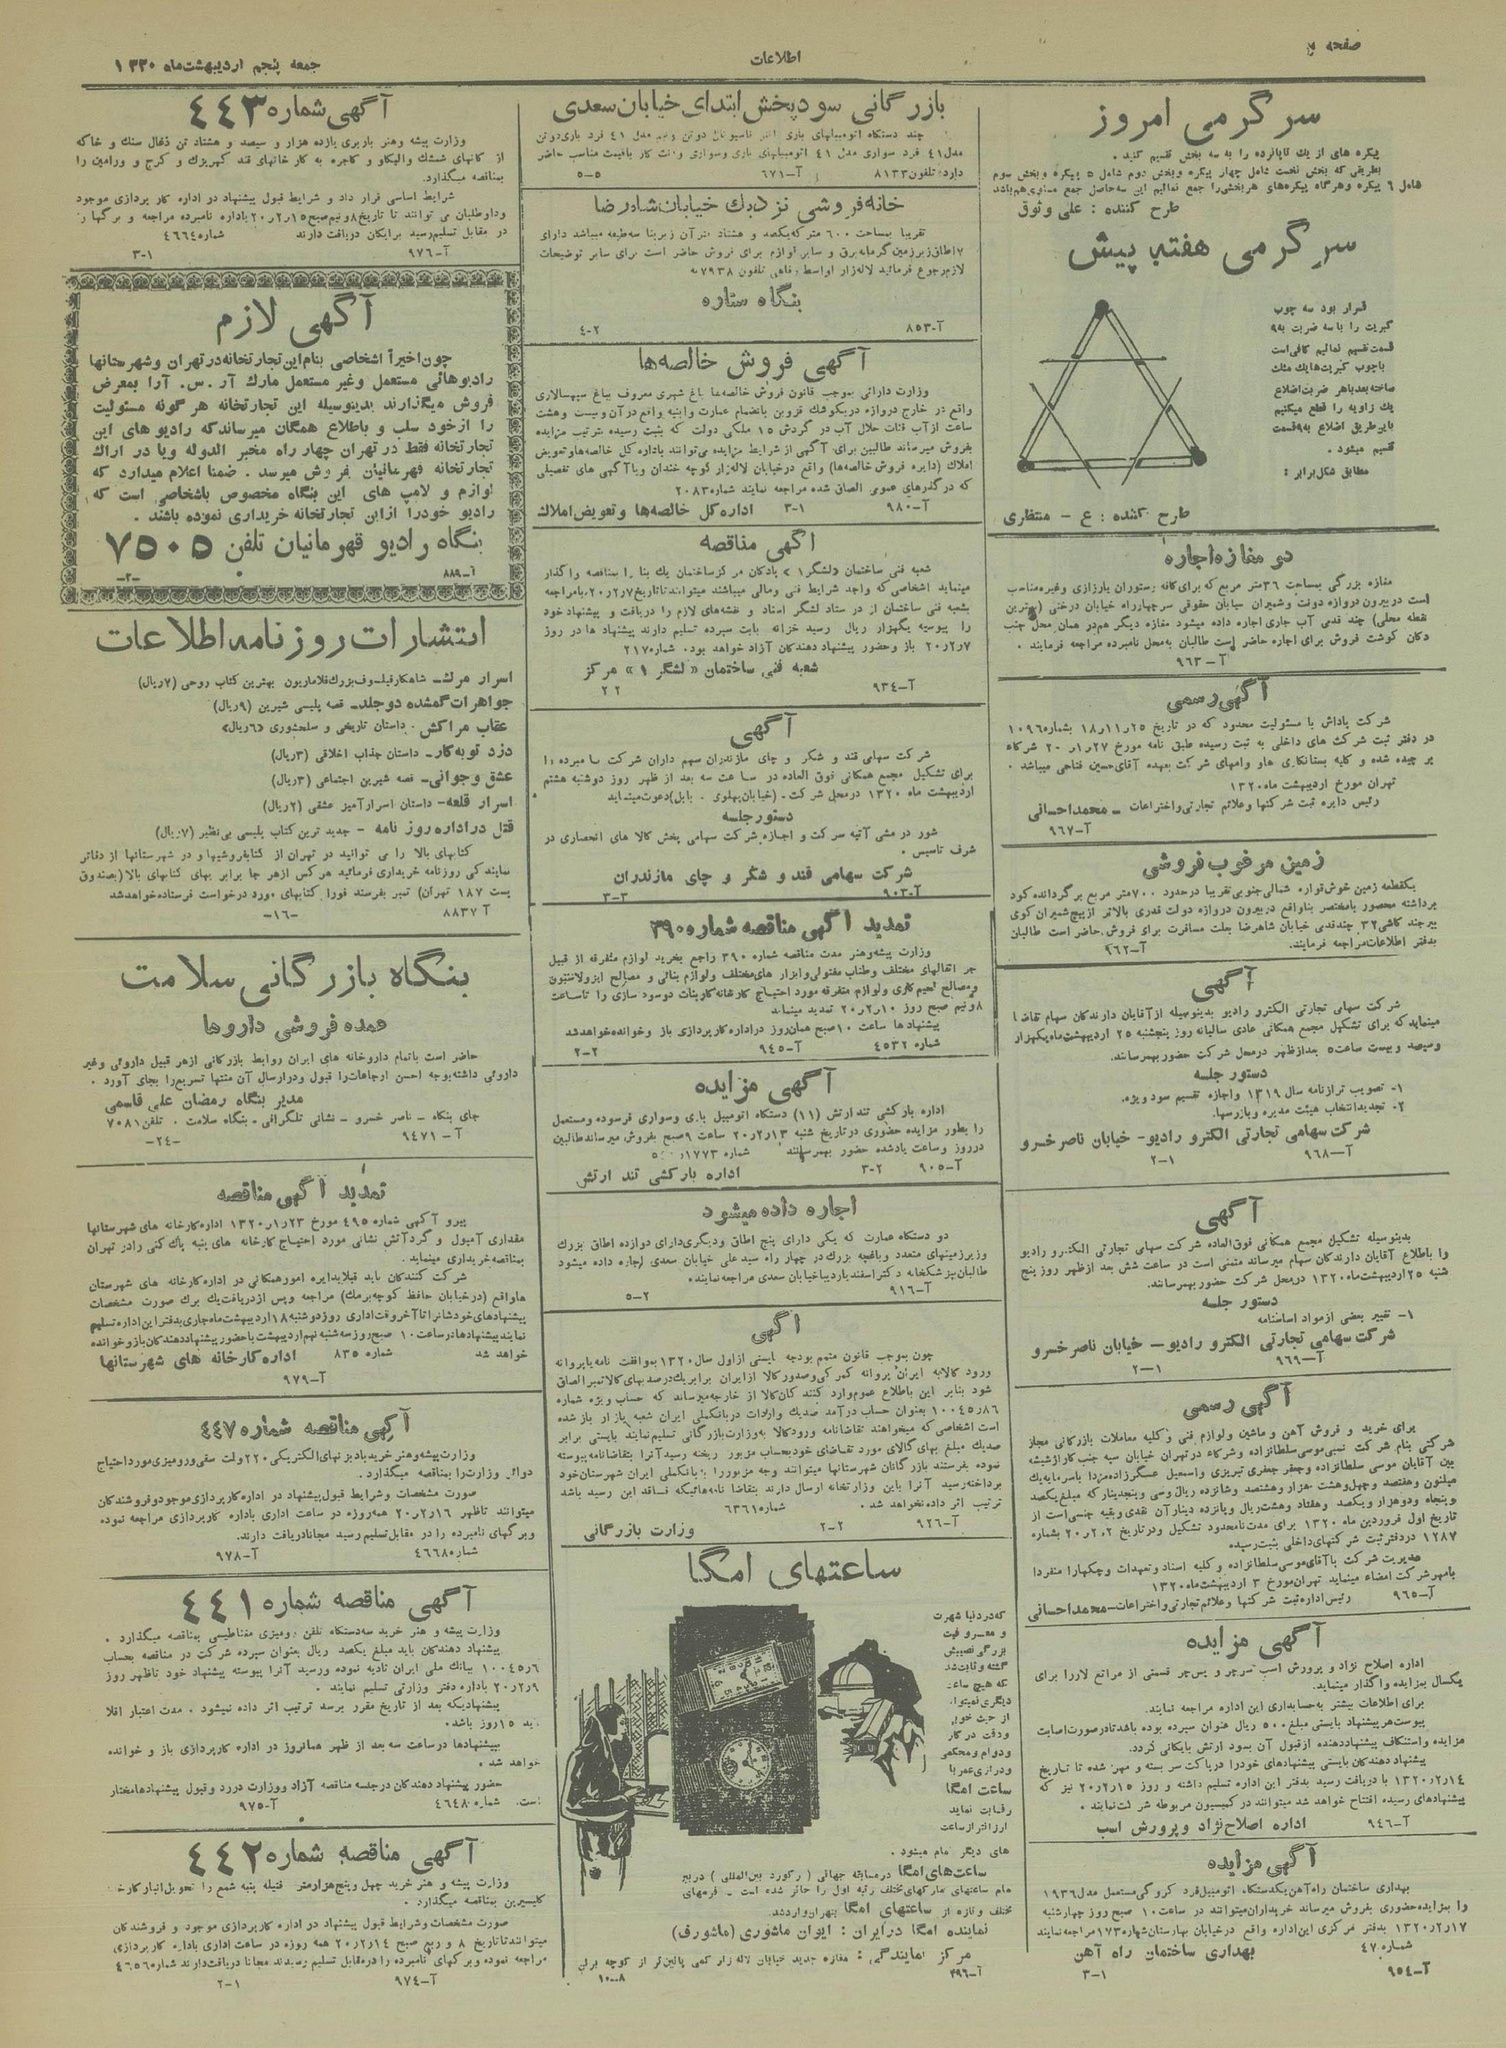 صفحه
اطلاعات
جمعه پنجم اردیبهشت ماه ۱۳۲۰
سرگرمی امروز
پیکره های از یک تا پانزده را به سه بخش تقسیم کنید.
بطریقی که بخش نخست شامل چهار پیکره و بخش دوم شامل ۵ پیکره و بخش سوم
شامل ۶ پیکره و هرگاه پیکره‌های هر بخش را جمع نمائیم این سه حاصل جمع مساوی هم باشد
طرح کننده : علی وثوق
سرگرمی هفته پیش
قرار بود سه چوب
کبریت را با سه ضربت به ۹
قسمت تقسیم نمائیم کافی است
با چوب کبریت‌ها یک مثلث
ساخته بعد با هر ضربت اضلاع
یک زاویه را قطع میکنیم
باین طریق اضلاع به ۹ قسمت
تقسیم میشود .
مطابق شکل برابر :
طرح کننده : ع - منتظری
دو مغازه اجاره
مغازه بزرگی بمساحت ۳۶ متر مربع که برای کافه رستوران یا رزازی و غیره مناسب
است در بیرون دروازه دولت و شمیران خیابان حقوقی سر چهارراه خیابان درختی (بهترین
نقطه محلی) چند قدمی آب جاری اجاره داده میشود مغازه دیگر هم در همان محل جنب
دکان گوشت فروش برای اجاره حاضر است طالبان به محل نامبرده مراجعه فرمایند .
آ-۹۶۳
آگهی رسمی
شرکت پاداش با مسئولیت محدود که در تاریخ ۲۵ر۱۱ر۱۸ بشماره ۱۰۹۶
در دفتر ثبت شرکت های داخلی به ثبت رسیده طبق نامه مورخ ۲۷ر۱ر۲۰ شرکاء
بر چیده شده و کلیه بستانکاری ها و وامهای شرکت بعهده آقای حسین فتاحی میباشد .
تهران مورخ اردیبهشت ماه ۱۳۲۰
رئیس دایره ثبت شرکتها و علائم تجارتی و اختراعات - محمد احسانی
آ-۹۶۷
زمین مرغوب فروشی
یکقطعه زمین خوش قواره شمالی جنوبی تقریبا در حدود ۷۰۰ متر مربع بر گردانده گود
برداشته محصور با مختصر بنا واقع در بیرون دروازه دولت قدری بالاتر از پیچ شمیران کوی
بیرجند کاشی ۳۲ چند قدمی خیابان شاهرضا بعلت مسافرت برای فروش حاضر است طالبان
بدفتر اطلاعات مراجعه فرمایند.
آ-۹۶۲
آگهی
شرکت سهامی تجارتی الکترو رادیو بدینوسیله از آقایان دارندگان سهام تقاضا
مینماید که برای تشکیل مجمع همگانی عادی سالیانه روز پنجشنبه ۲۵ اردیبهشت ماه یکهزار
و سیصد و بیست ساعت ۵ بعد از ظهر در محل شرکت حضور بهمرسانند.
دستور جلسه
۱- تصویب ترازنامه سال ۱۳۱۹ و اجازه تقسیم سود ویژه.
۲- تجدید انتخاب هیئت مدیره و بازرسها.
شرکت سهامی تجارتی الکترو رادیو- خیابان ناصر خسرو
آ-۹۶۸ ۲-۱
آگهی
بدینوسیله تشکیل مجمع همگانی فوق العاده شرکت سهامی تجارتی الکترو رادیو
را باطلاع آقایان دارندگان سهام میرساند متمنی است در ساعت شش بعد از ظهر روز پنج
شنبه ۲۵ اردیبهشت ماه ۱۳۲۰ در محل شرکت حضور بهمرسانند.
دستور جلسه
۱- تغییر بعضی از مواد اساسنامه
شرکت سهامی تجارتی الکترو رادیو- خیابان ناصر خسرو
آ-۹۶۹ ۲-۱
آگهی رسمی
برای خرید و فروش آهن و ماشین و لوازم فنی و کلیه معاملات بازرگانی مجاز
شرکتی بنام شرکت نسبی موسی سلطانزاده و شرکاء در تهران خیابان سپه جنب کاراژ شیشه
بین آقایان موسی سلطانزاده و جعفر جعفری تبریزی و اسمعیل عسگرزاده مزدا با سرمایه یک
میلیون و هفتصد و چهل و هشت هزار و هشتصد و شانزده ریال و سی و پنجدینار که مبلغ یکصد
و پنجاه و دو هزار و یکصد و هفتاد و هشت ریال و پانزده دینار آن نقدی و بقیه جنسی است از
تاریخ اول فروردین ماه ۱۳۲۰ برای مدت نامحدود تشکیل و در تاریخ ۲ر۲ر۲۰ بشماره
۱۲۸۷ در دفتر ثبت شرکتهای داخلی بثبت رسیده
مدیریت شرکت با آقای موسی سلطانزاده و کلیه اسناد و تعهدات و چکها را منفردا
با مهر شرکت امضاء مینماید تهران مورخ ۳ اردیبهشت ماه ۱۳۲۰
آ-۹۶۵ رئیس اداره ثبت شرکتها و علائم تجارتی و اختراعات- محمد احسانی
آگهی مزایده
اداره اصلاح نژاد و پرورش اسب سرچر و پس‌چر قسمتی از مراتع لار را برای
یکسال بمزایده واگذار مینماید.
برای اطلاعات بیشتر به حسابداری این اداره مراجعه نمایند.
پیوست هر پیشنهاد بایستی مبلغ ۵۰۰ ریال عنوان سپرده بوده باشد تا در صورت اصابت
مزایده و استنکاف پیشنهاد دهنده از قبول آن بسود ارتش بایگانی گردد.
پیشنهاد دهندگان بایستی پیشنهادهای خود را در پاکت سر بسته و مهر شده تا تاریخ
۱۴ر۲ر۱۳۲۰ با دریافت رسید بدفتر این اداره تسلیم داشته و روز ۱۵ر۲ر۲۰ نیز که
پیشنهادهای رسیده افتتاح خواهد شد میتوانند در کمیسیون مربوطه شرکت نمایند .
آ-۹۴۶ اداره اصلاح نژاد و پرورش اسب
آگهی مزایده
بهداری ساختمان راه آهن یکدستگاه اتومبیل فرد کروکی مستعمل مدل ۱۹۳۶
را بمزایده حضوری بفروش میرساند خریداران میتوانند در ساعت ۱۰ صبح روز چهارشنبه
۱۷ر۲ر۱۳۲۰ بدفتر مرکزی این اداره واقع در خیابان بهارستان شماره ۱۷۳ مراجعه نمایند
شماره ۴۷ بهداری ساختمان راه آهن
آ-۹۵۴ ۳-۱
بازرگانی سودبخش ابتدای خیابان سعدی
چند دستگاه اتومبیلهای باری انترناسیونال دو تن و نیم مدل ۴۱ فرد باری دو تن
مدل ۴۱ فرد سواری مدل ۴۱ اتومبیلهای باری و سواری و انت کار باقیمت مناسب حاضر
دارد: تلفون ۸۱۳۳ آ-۶۷۱ ۵-۵
خانه فروشی نزدیک خیابان شاهرضا
تقریبا بمساحت ۶۰۰ متر که یکصد و هشتاد متر آن زیر بنا سه طبقه میباشد دارای
۷ اطاق زیرزمین گرمابه برق و سایر لوازم برای فروش حاضر است برای سایر توضیحات
لازم رجوع فرمائید لاله‌زار اواسط رفاهی تلفون ۷۹۳۸
بنگاه ستاره
آ-۸۵۳ ۴-۲
آگهی فروش خالصه‌ها
وزارت دارائی بموجب قانون فروش خالصه‌ها باغ شهری معروف بباغ سپهسالاری
واقع در خارج دروازه دربکوشک قزوین بانضمام عمارت و ابنیه واقع در آن و بیست و هشت
ساعت از آب قنات حلال آب در گردش ۱۵ ملکی دولت که بثبت رسیده بترتیب مزایده
بفروش میرساند طالبین برای آگهی از شرایط مزایده می‌توانند باداره کل خالصه‌ها و تعویض
املاک (دایره فروش خالصه‌ها) واقع در خیابان لاله‌زار کوچه خندان و یا آگهی های تفصیلی
که در گذرهای عمومی الصاق شده مراجعه نمایند شماره ۲۰۸۳
آ-۹۸۰ ۳-۱ اداره کل خالصه‌ها و تعویض املاک
آگهی مناقصه
شعبه فنی ساختمان «لشگر ۱» پادگان مرکز ساختمان یک بنا را بمناقصه واگذار
مینماید اشخاصی که واجد شرایط فنی و مالی میباشند میتوانند تا تاریخ ۷ر۲ر۲۰ با مراجعه
بشعبه فنی ساختمان از در ستاد لشگر اسناد و نقشه‌های لازم را دریافت و پیشنهاد خود
را بپیوسیه یکهزار ریال رسید خزانه بابت سپرده تسلیم دارند پیشنهاد ها در روز
۷ر۲ر۲۰ باز و حضور پیشنهاد دهندگان آزاد خواهد بود. شماره ۲۱۷
شعبه فنی ساختمان «لشگر ۱» مرکز
آ-۹۳۴ ۲ ۲
آگهی
شرکت سهامی قند و شکر و چای مازندران سهم داران شرکت نامبرده را
برای تشکیل مجمع همگانی فوق العاده در ساعت سه بعد از ظهر روز دوشنبه هشتم
اردیبهشت ماه ۱۳۲۰ در محل شرکت - (خیابان پهلوی - بابل) دعوت مینماید
دستور جلسه
شور در مشی آتیه شرکت و اجازه شرکت سهامی پخش کالا های انحصاری در
شرف تاسیس .
شرکت سهامی قند و شکر و چای مازندران
آ-۹۰۳ ۳-۳
تمدید آگهی مناقصه شماره ۳۹۰
وزارت پیشه و هنر مدت مناقصه شماره ۳۹۰ راجع بخرید لوازم متفرقه از قبیل
جراثقالهای مختلف و طناب مفتولی و ابزار های مختلف و لوازم بنائی و مصالح ایزولاسیون
و مصالح لحیم کاری و لوازم متفرقه مورد احتیاج کارخانه کاربنات دوسود سازی را تا ساعت
۸ و نیم صبح روز ۱۰ر۲ر۲۰ تمدید مینماید
پیشنهادها ساعت ۱۰ صبح همان روز در اداره کارپردازی باز و خوانده خواهد شد
شماره ۴۵۳۲ آ-۹۴۵ ۲-۲
آگهی مزایده
اداره بارکشی تند ارتش (۱۱) دستگاه اتومبیل باری و سواری فرسوده و مستعمل
را بطور مزایده حضوری در تاریخ شنبه ۱۳ر۲ر۲۰ ساعت ۹ صبح بفروش میرساند طالبین
در روز و ساعت یاد شده حضور بهمرسانند شماره ۱۷۷۳ر
آ-۹۰۵ ۳-۲ اداره بارکشی تند ارتش
اجاره داده میشود
دو دستگاه عمارت که یکی دارای پنج اطاق و دیگری دارای دوازده اطاق بزرگ
و زیرزمینهای متعدد و باغچه بزرگ در چهار راه سید علی خیابان سعدی اجاره داده میشود
طالبان بپزشکخانه دکتر اسفندیار دیبا خیابان سعدی مراجعه نمایند.
آ-۹۱۶ ۵-۲
آگهی
چون بموجب قانون متمم بودجه بایستی از اول سال ۱۳۲۰ بموافقت نامه یا پروانه
ورود کالا به ایران پروانه گمرکی و صدور کالا از ایران برابر یک درصد بهای کالا تمبر الصاق
شود بنابر این باطلاع عموم وارد کنندگان کالا از خارجه میرساند که حساب ویژه شماره
۱۰۰۴۵ر۸۶ بعنوان حساب درآمد صدیک واردات در بانک ملی ایران شعبه بازار باز شده
است اشخاصی که میخواهند تقاضانامه ورود کالا به وزارت بازرگانی تسلیم نمایند بایستی برابر
صدیک مبلغ بهای کالای مورد تقاضای خود بحساب مزبور ریخته رسید آنرا بتقاضانامه پیوسته
نموده بفرستند بازرگانان شهرستانها میتوانند وجه مزبور را ببانک ملی ایران شهرستان خود
پرداخته رسید آنرا باین وزارتخانه ارسال دارند بتقاضا نامه‌هائیکه فاقد این رسید باشد
ترتیب اثر داده نخواهد شد . شماره ۶۳۶۱
آ-۹۲۶ ۲-۲ وزارت بازرگانی
ساعتهای امگا
که در دنیا شهرت
و معروفیت
بزرگی نصیبش
گشته و ثابت شد
که هیچ ساعت
دیگری نمیتواند
از حیث خوبی
و دقت در کار
و دوام و محکمی
و درازی عمر با
ساعت امگا
رقابت نماید
ارزانتر از ساعت
های دیگر تمام میشود .
ساعت‌های امگا در مسابقه جهانی (رکورد بین‌المللی) در بین
تمام ساعتهای مارکهای مختلف رتبه اول را حائز شده است - فرمهای
مختلف و تازه از ساعتهای امگا بتهران وارد شد.
نماینده امگا در ایران : ایوان ماشوری (ماشورق)
مرکز نمایندگی : مغازه جدید خیابان لاله زار کمی پائین‌تر از کوچه برلن
آ-۴۹۶ ۱۰-۸
آگهی شماره ۴۴۳
وزارت پیشه و هنر باربری یازده هزار و سیصد و هشتاد تن ذغال سنگ و خاکه
از کانهای شمشک و الیکاو و گاجره به کار خانهای قند کهریزک و کرج و ورامین را
بمناقصه میگذارد.
شرایط اساسی قرار داد و شرایط قبول پیشنهاد در اداره کار پردازی موجود
و داوطلبان می توانند تا تاریخ ۸ و نیم صبح ۱۵ر۲ر۲۰ باداره نامبرده مراجعه و برگها را
در مقابل تسلیم رسید برایگان دریافت دارند شماره ۴۶۶۴
آ-۹۷۶ ۳-۱
آگهی لازم
چون اخیراً اشخاصی بنام این تجارتخانه در تهران و شهرستانها
رادیوهائی مستعمل و غیر مستعمل مارک آر . س . آرا بمعرض
فروش میگذارند بدینوسیله این تجارتخانه هر گونه مسئولیت
را از خود سلب و باطلاع همگان میرساند که رادیو های این
تجارتخانه فقط در تهران چهار راه مخبر الدوله و یا در اراک
تجارتخانه قهرمانیان بفروش میرسد . ضمنا اعلام میدارد که
لوازم و لامپ های این بنگاه مخصوص باشخاصی است که
رادیو خود را از این تجارتخانه خریداری نموده باشند .
بنگاه رادیو قهرمانیان تلفن ۷۵۰۵
آ-۸۸۹ -۲-
انتشارات روزنامه اطلاعات
اسرار مرگ- شاهکار فیلسوف بزرگ فلاماریون بهترین کتاب روحی (۷ ریال)
جواهرات گمشده دو جلد- قصه پلیسی شیرین (۹ ریال)
عقاب مراکش . داستان تاریخی و سلحشوری «۶ ریال»
دزد توبه کار- داستان جذاب اخلاقی (۳ ریال)
عشق و جوانی- قصه شیرین اجتماعی (۳ ریال)
اسرار قلعه- داستان اسرارآمیز عشقی (۲ ریال)
قتل در اداره روزنامه - جدید ترین کتاب پلیسی بی‌نظیر (۷ ریال)
کتابهای بالا را می توانید در تهران از کتابفروشیها و در شهرستانها از دفاتر
نمایندگی روزنامه خریداری فرمائید هر کس از هر جا برابر بهای کتابهای بالا (بصندوق
پست ۱۸۷ تهران) تمبر بفرستد فورا کتابهای مورد درخواست فرستاده خواهد شد
آ ۸۸۳۷ -۱۶-
بنگاه بازرگانی سلامت
عمده فروشی داروها
حاضر است با تمام داروخانه های ایران روابط بازرگانی از هر قبیل داروئی و غیر
داروئی داشته بوجه احسن ارجاعات را قبول و در ارسال آن منتها تسریع را بجای آورد .
مدیر بنگاه رمضان علی قاسمی
جای بنگاه - ناصر خسرو - نشانی تلگرافی - بنگاه سلامت . تلفن ۷۰۸۱
آ-۹۴۷۱ -۲۴-
تمدید آگهی مناقصه
پیرو آگهی شماره ۴۹۵ مورخ ۲۳ر۱ر۱۳۲۰ اداره کارخانه های شهرستانها
مقداری آمبول و گرد آتش نشانی مورد احتیاج کارخانه های پنبه پاک کنی را در تهران
بمناقصه خریداری مینماید.
شرکت کنندگان باید قبلا بدایره امور همگانی در اداره کارخانه های شهرستان
ها واقع (در خیابان حافظ کوچه برمک) مراجعه و پس از دریافت یک برک صورت مشخصات
پیشنهادهای خودشانرا تا آخر وقت اداری روز دوشنبه ۸ اردیبهشت ماه جاری بدفتر این اداره تسلیم
نمایند پیشنهادها در ساعت ۱۰ صبح روز سه شنبه نهم اردیبهشت با حضور پیشنهاد دهندگان باز و خوانده
خواهد شد شماره ۸۳۵ اداره کارخانه های شهرستانها
آ-۹۷۹
آگهی مناقصه شماره ۴۴۷
وزارت پیشه و هنر خرید بادبزنهای الکتریکی ۲۲۰ ولت سقفی و رومیزی مورد احتیاج
دوائر وزارت را بمناقصه میگذارد .
صورت مشخصات و شرایط قبول پیشنهاد در اداره کارپردازی موجود و فروشندگان
میتوانند تا ظهر ۱۶ر۲ر۲۰ همه روزه در ساعت اداری باداره کارپردازی مراجعه نموده
و برگهای نامبرده را در مقابل تسلیم رسید مجانا دریافت دارند.
شماره ۴۶۶۸ آ-۹۷۸
آگهی مناقصه شماره ۴۴۱
وزارت پیشه و هنر خرید سه دستگاه تلفن رومیزی مغناطیسی بمناقصه میگذارد .
پیشنهاد دهندگان باید مبلغ یکصد ریال بعنوان سپرده شرکت در مناقصه بحساب
۱۰۰۴۵ر۶ ببانک ملی ایران تادیه نموده و رسید آنرا پیوسته پیشنهاد خود تا ظهر روز
۹ر۲ر۲۰ باداره دفتر وزارتی تسلیم نمایند .
پیشنهادیکه بعد از تاریخ مقرر برسد ترتیب اثر داده نمیشود . مدت اعتبار اقلا
باید ۱۵ روز باشد.
پیشنهادها در ساعت سه بعد از ظهر همانروز در اداره کارپردازی باز و خوانده
خواهد شد .
حضور پیشنهاد دهندگان در جلسه مناقصه آزاد و وزارت در رد و قبول پیشنهادها مختار
است. شماره ۴۶۴۸ آ-۹۷۵
آگهی مناقصه شماره ۴۴۲
وزارت پیشه و هنر خرید چهل و پنج هزار متر فتیله پنبه شمع را تحویل انبار کارخانه
گلیسیرین بمناقصه میگذارد .
صورت مشخصات و شرایط قبول پیشنهاد در اداره کارپردازی موجود و فروشندگان
میتوانند تا تاریخ ۸ و ربع صبح ۱۴ر۲ر۲۰ همه روزه در ساعت اداری باداره کارپردازی
مراجعه نموده و برگهای نامبرده را در مقابل تسلیم رسید مجانا دریافت دارند شماره ۴۶۵۶
آ-۹۷۴ ۲-۱